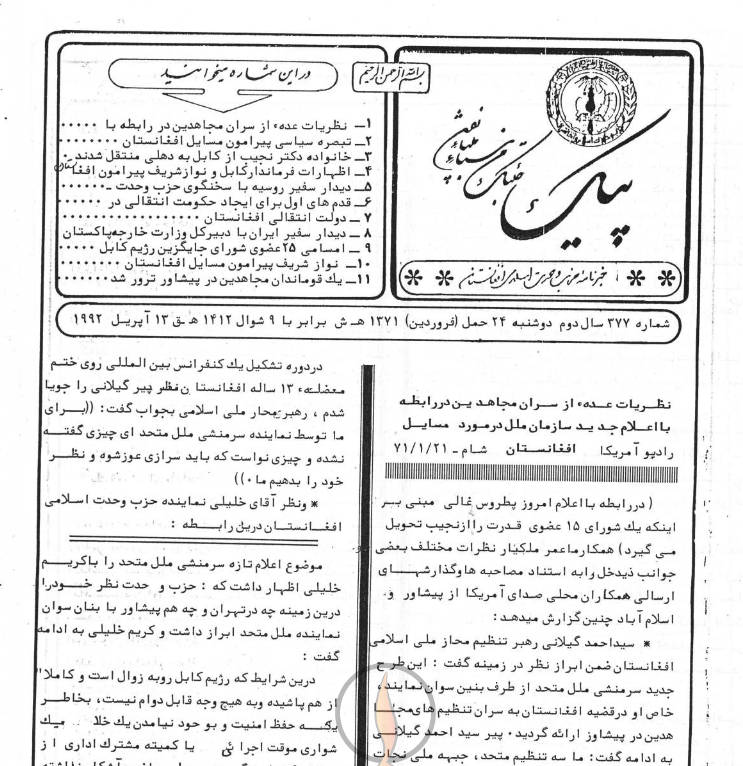 بسم الله الرحمن الرحیم
پیک
خبرنامه
در این شماره میخوانید
۱ــ نظریات عدهء از سران مجاهدین در رابطه با ۰۰۰۰۰
۲ــ تبصره سیاسی پیرامون مسایل افغانستان ۰۰۰۰۰۰۰۰
۳ــ خانواده دکتر نجیب از کابل به دهلی منتقل شدند ۰
۴ــ اظهارات فرماندارکابل و نوازشریف پیرامون افغانستان
۵ــ دیدار سفیر روسیه با سخنگوی حزب وحدت ــ۰۰۰۰۰۰
۶ــ قدم های اول برای ایجاد حکومت انتقالی در ۰۰۰۰۰
۷ ــ دولت انتقالی افغانستان ۰۰۰۰۰۰۰۰۰۰۰۰۰۰۰۰۰
۸ ــ دیدار سفیر ایران با دبیرکل وزارت خارجه پاکستان
۹ ــ اسامی ۲۵عضوی شورای جایگزین رژیم کابل ۰۰۰۰۰
۱۰ــ نواز شریف پیرامون مسایل افغانستان ۰۰۰۰۰۰۰۰
۱۱ــ یك قوماندان مجاهدین در پیشاور ترور شد۰۰۰۰۰۰۰
شماره ۳۷۷ سال دوم دوشنبه ۲۴ حمل (فروردین) ۱۳۷۱ هـ ش برابر با ۹ شوال ۱۴۱۲ هـ ق ۱۳ آپریل ۱۹۹۲
نظـریات عـدهء از سـران مجاهد ین دررابطه
با اعـلام جد ید سازمان ملل درمورد مسایـل
رادیو آمریکا افغانستان شام ـ ۷۱/۱/۲۱
( دررابطه با اعلام امروز پطروس غالی مبنی بـر
اینکه یك شورای ۱۵ عضوی قدرت را ازنجیب تحویل
می گیرد) همکارما عمر ملکیار نظرات مختلف بعضی
جوانب ذیدخل رابه استناد مصاحبه هاوگذارشهـای
ارسالی همکاران محلی صدای آمریکا از پیشاور و
اسلام آباد چنین گزارش میدهد :
* سیداحمد گیلانی رهبر تنظیم محاز ملی اسلامی
افغانستان ضمن ابراز نظر در زمینه گفت : این طرح
جدید سرمنشی ملل متحد از طرف بنین سوان نمایندء
خاص او درقضیه افغانستان به سران تنظیم های مجـا
هدین در پیشاوز ارائه گردید۰ پیر سید احمد گیلانـی
به ادامه گفت: ما سه تنظیم متحد، جبهه ملی نجات
دردوره تشکیل یك کنفرانس بین المللی روی ختـم
معضلهء ۱۳ ساله افغانستان نظر پیر گیلانی را جویا
شدم ، رهبر محار ملی اسلامی بجواب گفت: ((بـرای
ما توسط نماینده سرمنشی ملل متحد ای چیزی گفتــه
نشده و چیزی نواست که باید سرازی عوزشوه و نظـر
خود را بدهیم ما۰))
* ونظر آقای خلیلی نماینده حزب وحدت اسـلامی
افغـانستـان درین رابـطه :
موضوع اعلام تازه سرمنشی ملل متحد را باکریـم
خلیلی اظهار داشت که : حزب و حدت نظر خـودرا
درین زمینه چه درتهران و چه هم پیشاور با بنان سوان
نماینده ملل متحد ابراز داشت و کریم خلیلی به ادامه
گفت :
درین شرایط که رژیم کابل روبه زوال است و کاملا"
از هم پاشیده وبه هیچ وجه قابل دوام نیست، بخاطـر
حفظ امنیت و بو حود نیامدن یك خلا
شواری موقت اجرا ئی یا کمیته مشترك اداری از